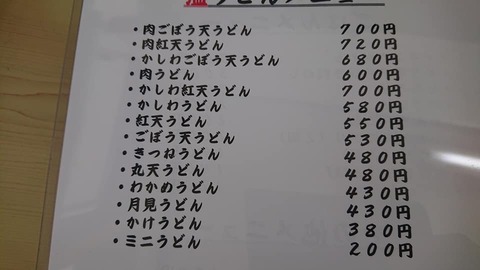 温うどんメニュー
・肉ごぼう天うどん 700円
・肉紅天うどん 720円
・かしわごぼう天うどん 680円
・肉うどん 600円
・かしわ紅天うどん 700円
・かしわうどん 580円
・紅天うどん 550円
・ごぼう天うどん 530円
・きつねうどん 480円
・丸天うどん 480円
・わかめうどん 430円
・月見うどん 430円
・かけうどん 380円
・ミニうどん 200円